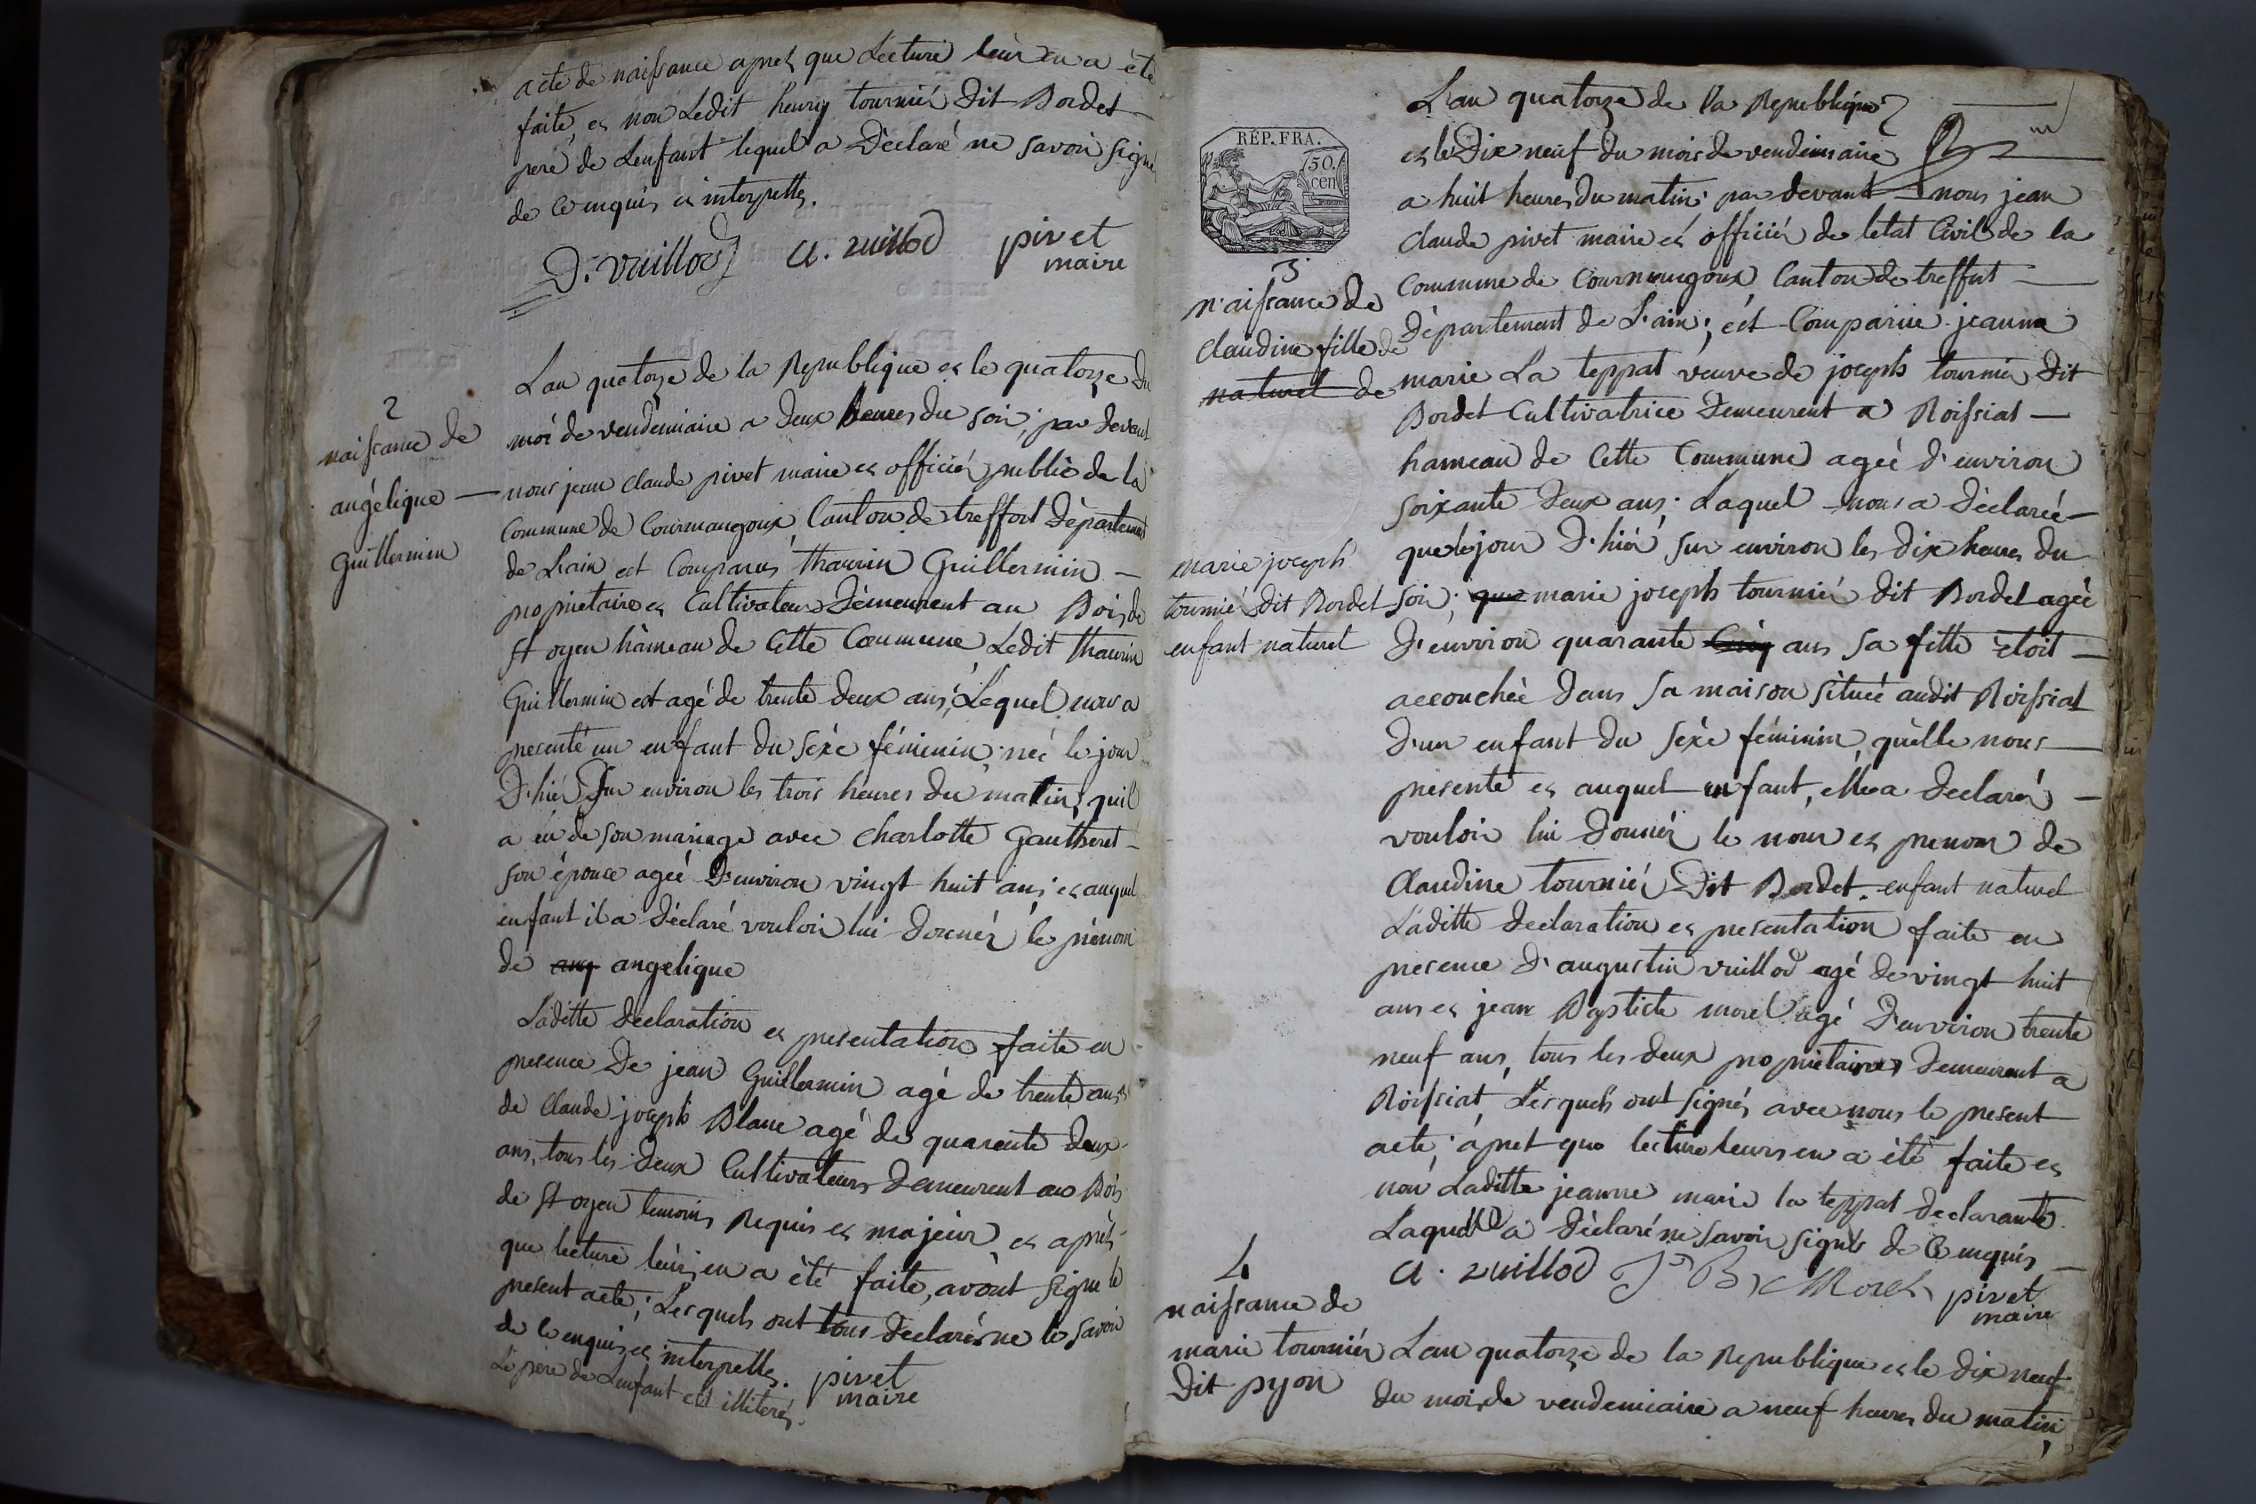 acte de naissance apret que Lecture leur en a été
faite, et non Ledit henry tournié dit Bordet
pere de Lenfant lequel a Déclaré ne savoir signé
de ce enquis et interpellé.
D. Vuillod A. vuillod pivet
maire
2
naissance de
angélique
Guillermin
Lan quatorze de la Republique et le quatorze du
moi de vendemiaire a deux heures du soir; par devant
nous jean claude pivet maire et officiér publie de la
Commune de Courmangoux Canton de treffort Département
de L'ain est Comparus thaurin Guillermin
propriétaire et Cultivateur Démeurent au Bois de
St oyen hâmeau de Cette Commune Ledit thaurin
Guillermin est agé de trente deux ans, Lequel nous a
presenté un enfant du sexe féminin; neé le jour
D'hiér sur environ les trois heures du matin; quil
a eu de son mariage avec charlotte Gautheret
son épouse ageé D'environ vingt huit ans et auquel
enfant il a déclaré vouloir lui donnér le prénom
de ang angelique
Laditte déclaration et presentation faite en
presence De jean Guillermin agé de trente ans et
de Claude joseph Blanc agé de quarente deux
ans, tous les deux Cultivateurs Demeurent au Bois
de St oyen temoins Requis et majeur, et aprèt
que lecture leurs en a été faite, avont signé le
present acte; Lesquels ont tous declarés ne le savoir
de ce enquis et interpellé. pivet
maire
Le père de Lenfant est illiteré.
RÉP. FRA.
50.
cen
3
naissance de
Claudine fille de
naturel de
marie joseph
tournié dit Bordet
enfant naturel
L'an quatorze de la Republique
et le Dix neuf du mois de vendemiaire
a huit heures du matin; par devant nous jean
claude pivet maire et officiér de letat Civil de la
Commune de Courmangoux Canton de treffort
Département de L'ain; est Comparue jeanne
marie La teppat veuve de joseph tournié dit
Bordet Cultivatrice Demeurent a Roissiat
hameau de Cette Commune ageé d'environ
soixante deux ans. Laquel nous a Déclareé
que le jour D'hiér sur environ les dix heures du
soir; que marie joseph tournié dit Bordet ageé
D'environ quarante Cinq ans sa fille étoit
accouchéé dans sa maison située audit Roissiat
D'un enfant du sexe féminin quèlle nous
presente et auquel enfant, elle a declaré
vouloir lui donnér le nom et prenom de
Claudine tourniér Dit Bordet enfant naturel
Laditte declaration et presentation faite en
presence D'augustin vuillod agé de vingt huit
ans et jean Baptiste morel agé D'environ trente
neuf ans, tous les deux propriétaires Demeurent a
Roissiat, Lesquels ont signés avec nous le present
acte; apret que lecture leurs en a été faite et
non Laditte jeanne marie la teppat declarante
Laquelle a déclaré ne savoir signér de ce enquis
A. vuillod J. B. Morel pivet
maire
4
naissance de
marie tourniér
Dit pyon
Lan quatorze de la Republique et le dix neuf
du mois de vendemiaire a neuf heures du matin